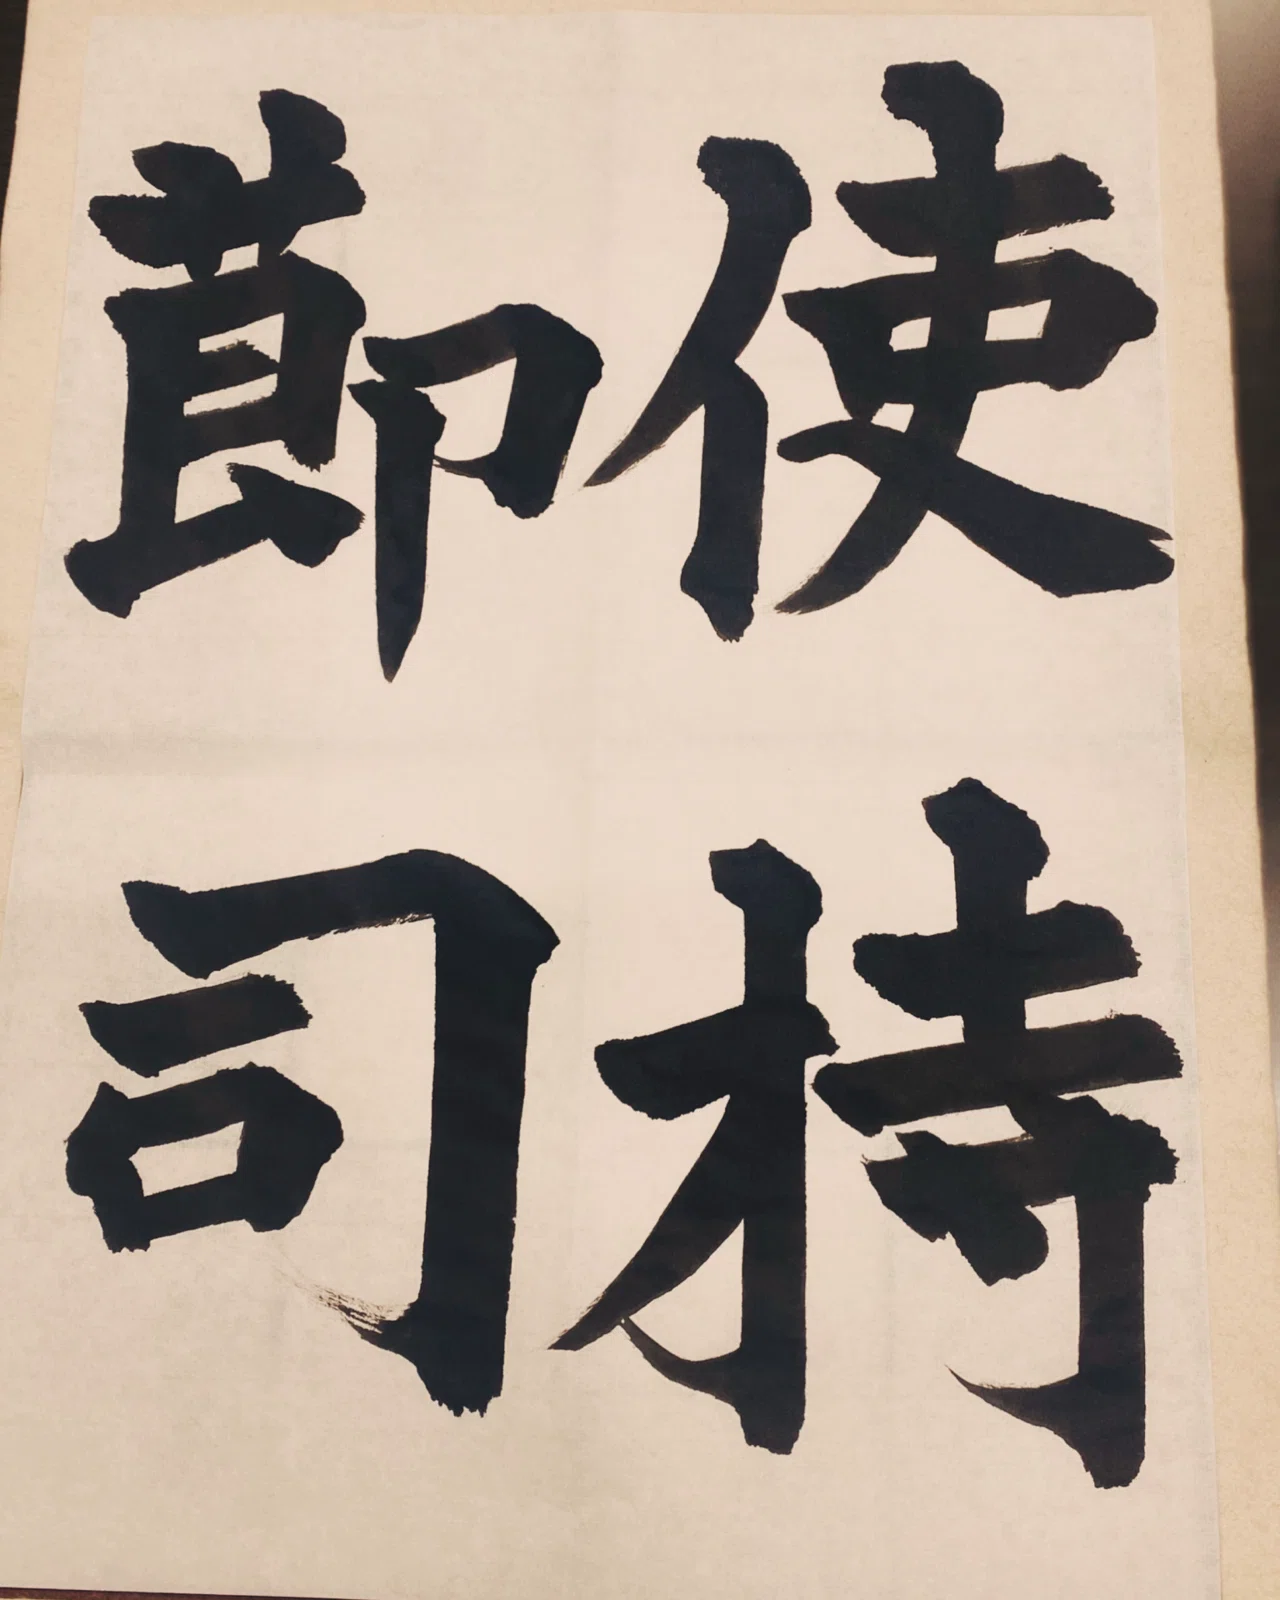 使持
節司